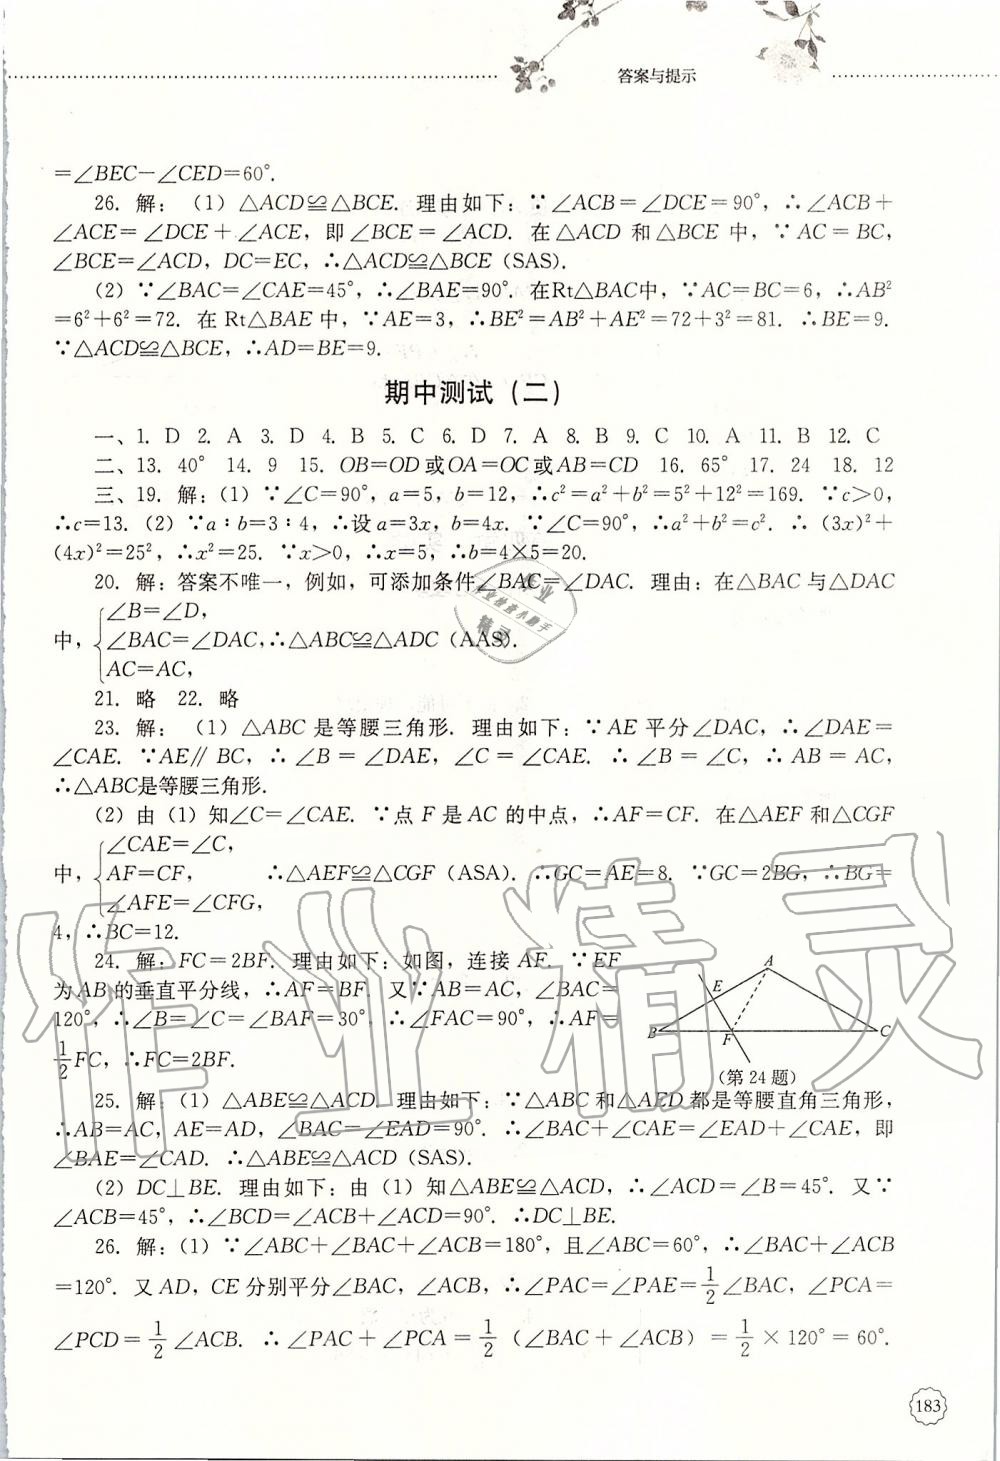 答案与提示
=∠BEC-∠CED=60°.
26. 解：（1）△ACD≌△BCE. 理由如下：∵∠ACB=∠DCE=90°，∴∠ACB+
∠ACE=∠DCE+∠ACE，即∠BCE=∠ACD. 在△ACD 和△BCE 中，∵AC=BC，
∠BCE=∠ACD，DC=EC，∴△ACD≌△BCE（SAS）.
（2）∵∠BAC=∠CAE=45°，∴∠BAE=90°. 在Rt△BAC中，∵AC=BC=6，∴AB²
=6²+6²=72. 在 Rt△BAE 中，∵AE=3，∴BE²=AB²+AE²=72+3²=81. ∴BE=9.
∵△ACD≌△BCE，∴AD=BE=9.
期中测试（二）
一、1. D 2. A 3. D 4. B 5. C 6. D 7. A 8. B 9. C 10. A 11. B 12. C
二、13. 40° 14. 9 15. OB=OD或OA=OC或AB=CD 16. 65° 17. 24 18. 12
三、19. 解：（1）∵∠C=90°，a=5，b=12，∴c²=a²+b²=5²+12²=169. ∵c>0，
∴c=13.（2）∵a∶b=3∶4，∴设a=3x，b=4x. ∵∠C=90°，∴a²+b²=c². ∴（3x）²+
（4x）²=25²，∴x²=25. ∵x>0，∴x=5，∴b=4×5=20.
20. 解：答案不唯一，例如，可添加条件∠BAC=∠DAC. 理由：在△BAC 与△DAC
∠B=∠D，
中，∠BAC=∠DAC，∴△ABC≌△ADC（AAS）.
AC=AC，
21. 略 22. 略
23. 解：（1）△ABC 是等腰三角形. 理由如下：∵AE 平分∠DAC，∴∠DAE=
∠CAE. ∵AE∥BC，∴∠B=∠DAE，∠C=∠CAE. ∴∠B=∠C，∴AB=AC，
∴△ABC是等腰三角形.
（2）由（1）知∠C=∠CAE. ∵点 F 是 AC 的中点，∴AF=CF. 在△AEF 和△CGF
∠CAE=∠C，
中，AF=CF， ∴△AEF≌△CGF（ASA）. ∴GC=AE=8. ∵GC=2BG，∴BG=
∠AFE=∠CFG，
4，∴BC=12.
24. 解：FC=2BF. 理由如下：如图，连接 AF. ∵EF
为 AB 的垂直平分线，∴AF=BF. 又∵AB=AC，∠BAC=
120°，∴∠B=∠C=∠BAF=30°，∴∠FAC=90°，∴AF=
1/2FC，∴FC=2BF.
A
E
B
F
C
（第 24 题）
25. 解：（1）△ABE≌△ACD. 理由如下：∵△ABC 和△AED 都是等腰直角三角形，
∴AB=AC，AE=AD，∠BAC=∠EAD=90°. ∴∠BAC+∠CAE=∠EAD+∠CAE，即
∠BAE=∠CAD. ∴△ABE≌△ACD（SAS）.
（2）DC⊥BE. 理由如下：由（1）知△ABE≌△ACD，∴∠ACD=∠B=45°. 又∵
∠ACB=45°，∴∠BCD=∠ACB+∠ACD=90°. ∴DC⊥BE.
26. 解：（1）∵∠ABC+∠BAC+∠ACB=180°，且∠ABC=60°，∴∠BAC+∠ACB
=120°. 又 AD，CE 分别平分∠BAC，∠ACB，∴∠PAC=∠PAE=1/2∠BAC，∠PCA=
∠PCD=1/2∠ACB. ∴∠PAC+∠PCA=1/2（∠BAC+∠ACB）=1/2×120°=60°.
183
作业精灵